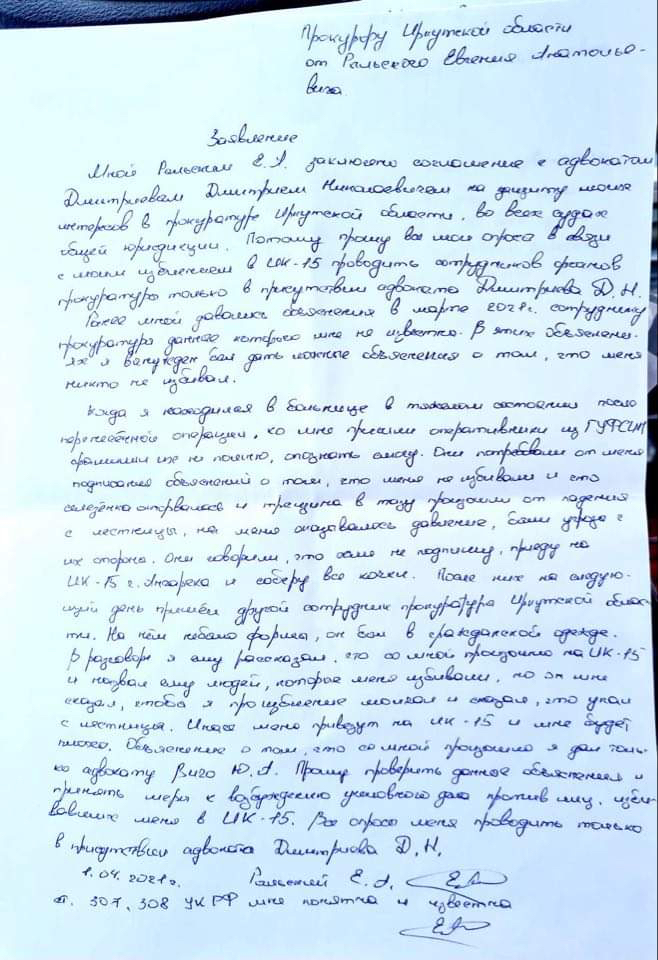 Прокурору Иркутской области
от Ральского Евгения Анатолье-
вича.
Заявление
Мной Ральским Е.А. заключено соглашение с адвокатом
Дмитриевым Дмитрием Николаевичем на защиту моих
интересов в прокуратуре Иркутской области, во всех судах
общей юрисдикции. Потому прошу все мои опроса в связи
с моим избиением в ИК-15 проводить сотрудников органов
прокуратуры только в присутствии адвоката Дмитриева Д.Н.
Ранее мной давались объяснения в марте 2021г. сотруднику
прокуратуры данное которого мне не известно. В этих объяснени-
ях я вынужден был дать ложные объяснения о том, что меня
никто не избивал.
Когда я находился в больнице в тяжелом состоянии после
перенесённой операции, ко мне пришли оперативники из ГУФСИН
фамилии их не помню, опознать смогу. Они потребовали от меня
подписания объяснений о том, что меня не избивали и что
селезёнка оторвалась и трещина в тазу произошли от падения
с лестницы, на меня оказывалось давление, были угрозы с
их стороны. Они говорили, что если не подпишу, приеду на
ИК-15 г. Ангарска и соберу все кочки. После них на следую-
щий день пришёл другой сотрудник прокуратура Иркутской облас-
ти. На нём небыло форма, он был в гражданской одежде.
В разговоре я ему рассказал, что со мной произошло на ИК-15
и назвал ему людей, которые меня избивали, но он мне
сказал, чтобы я про избиение молчал и сказал, что упал
с лестницы. Иначе меня привезут на ИК-15 и мне будет
плохо. Объяснение о том, что со мной произошло я дал толь-
ко адвокату Виго Ю.А. Прошу проверить данное объяснения и
принять меры к возбуждению уголовного дела против лиц, изби-
вавших меня в ИК-15. Все опроса меня проводить только
в присутствии адвоката Дмитриева Д.Н.
1.04.2021г. Ральский Е.А.
ст. 307, 308 УК РФ мне понятна и известна